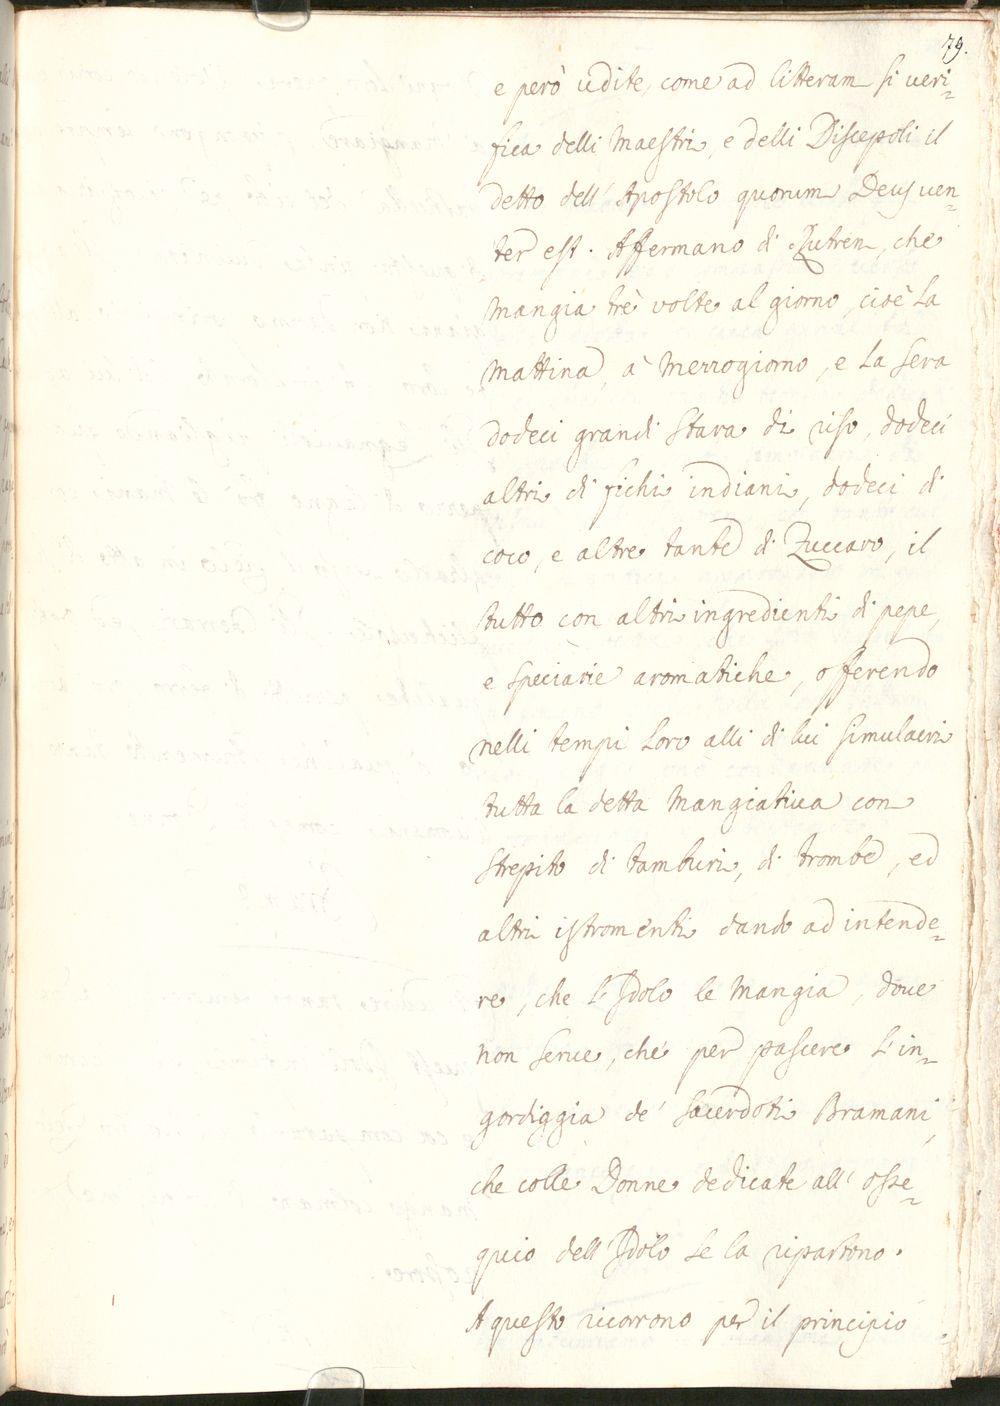 79.
e però udite, come ad litteram si veri=
fica delli Maestri, e delli Discepoli il
detto dell' Apostolo quorum Deus ven=
ter est. Affermano di Rutren, che
mangia trè volte al giorno, cioè la
mattina, à mezzogiorno, e la sera
dodeci grandi stara di riso, dodeci
altri di fichi indiani, dodeci di
coco, e altre tante di Zuccaro, il
tutto con altri ingredienti di pepe,
e speciarie aromatiche, offerendo
nelli tempi loro alli di lui simulacri
tutta la detta mangiativa con
strepito di tamburi, di trombe, ed
altri istromenti dando ad intende=
re, che l'Idolo le mangia, dove
non serve, che per pascere l'in=
gordiggia de' Sacerdoti Bramani,
che colle Donne dedicate all' osse=
quio dell' Idolo se la ripartono.
A questo ricorrono per il principio